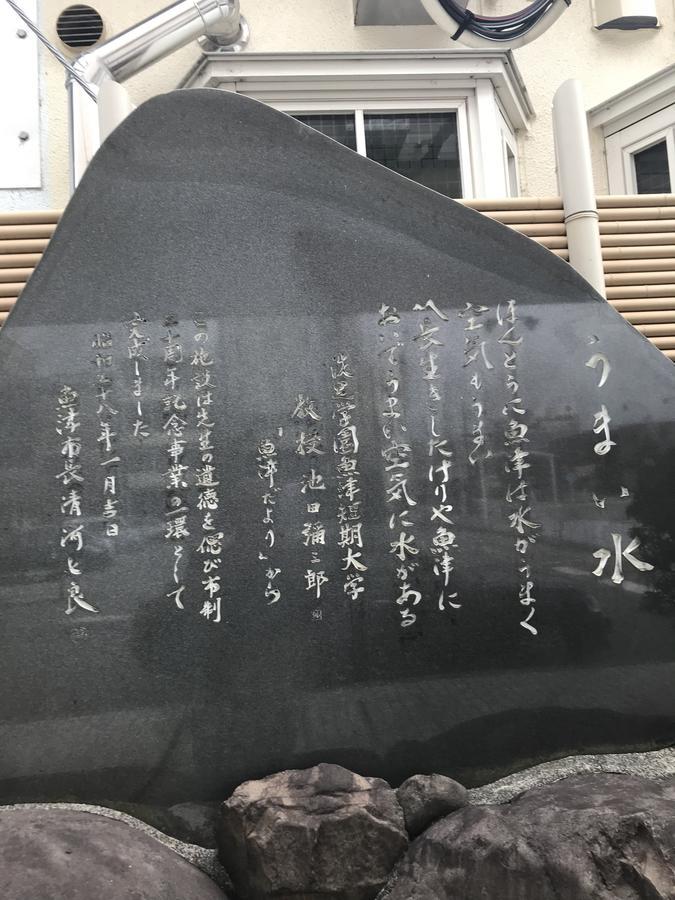 うまい水
ほんとうに魚津は水がうまく
空気もうまい
へ長生きしたけりや魚津に
おいでうまい空気に水がある
洗足学園魚津短期大学
教授 池田彌三郎
「魚津だより」から
この施設は先生の遺徳を偲び市制
三十周年記念事業の一環として
完成しました
昭和五十八年一月吉日
魚津市長清河七良